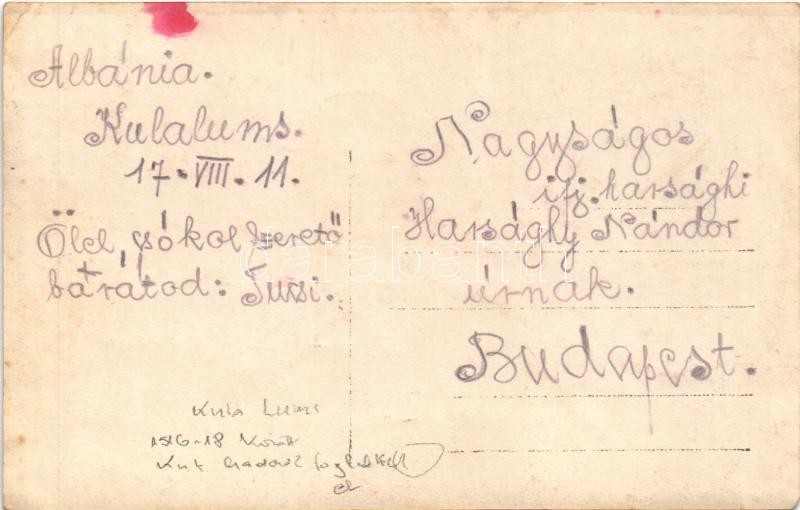 Albánia.
Kulalums.
17-VIII. 11.
Ölel, csókol szerető
barátod: Tuksi.
Nagyságos
ifj. harsághi
Harsághy Nándor
úrnak.
Budapest.
darabanth
Kula Lums
1916-18 között
K.u.K. csapatok foglalták
el